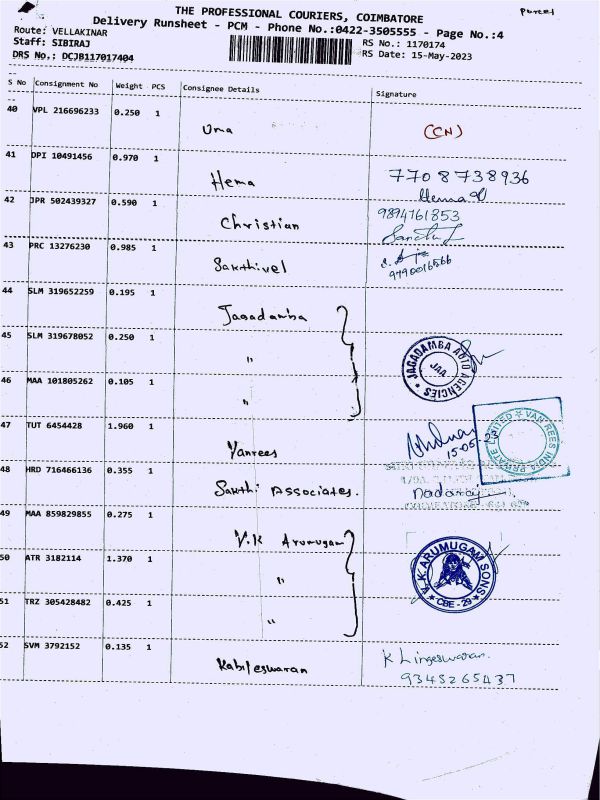 THE PROFESSIONAL COURIERS, COIMBATORE
Parcel
Delivery Runsheet - PCM - Phone No.:0422-3505555 - Page No.:4
Route: VELLAKINAR
RS No.: 1170174
Staff: SIBIRAJ
RS Date: 15-May-2023
DRS No.: DCJB117017404
S No Consignment No Weight PCS Consignee Details Signature
40 VPL 216696233 0.250 1 Uma (CN)
41 DPI 10491456 0.970 1 Hema 7708738936
Hema
42 JPR 502439327 0.590 1 Christian 9894161853
43 PRC 13276230 0.985 1 Sakthivel
9790016566
44 SLM 319652259 0.195 1 Jagadamba
45 SLM 319678052 0.250 1 "
JAGADAMBA AUTO AGENCIES
JAA
46 MAA 101805262 0.105 1 "
47 TUT 6454428 1.960 1 Vanrees
15-05-23
VAN REES INDIA PRIVATE LIMITED
48 HRD 716466136 0.355 1 Sakthi Associates.
49 MAA 859829855 0.275 1 V.K Arumugam
50 ATR 3182114 1.370 1 "
V.K ARUMUGAM SONS
CBE - 29
51 TRZ 305428482 0.425 1 "
52 SVM 3792152 0.135 1 Kabileswaran K Lingeswaran.
9345265437